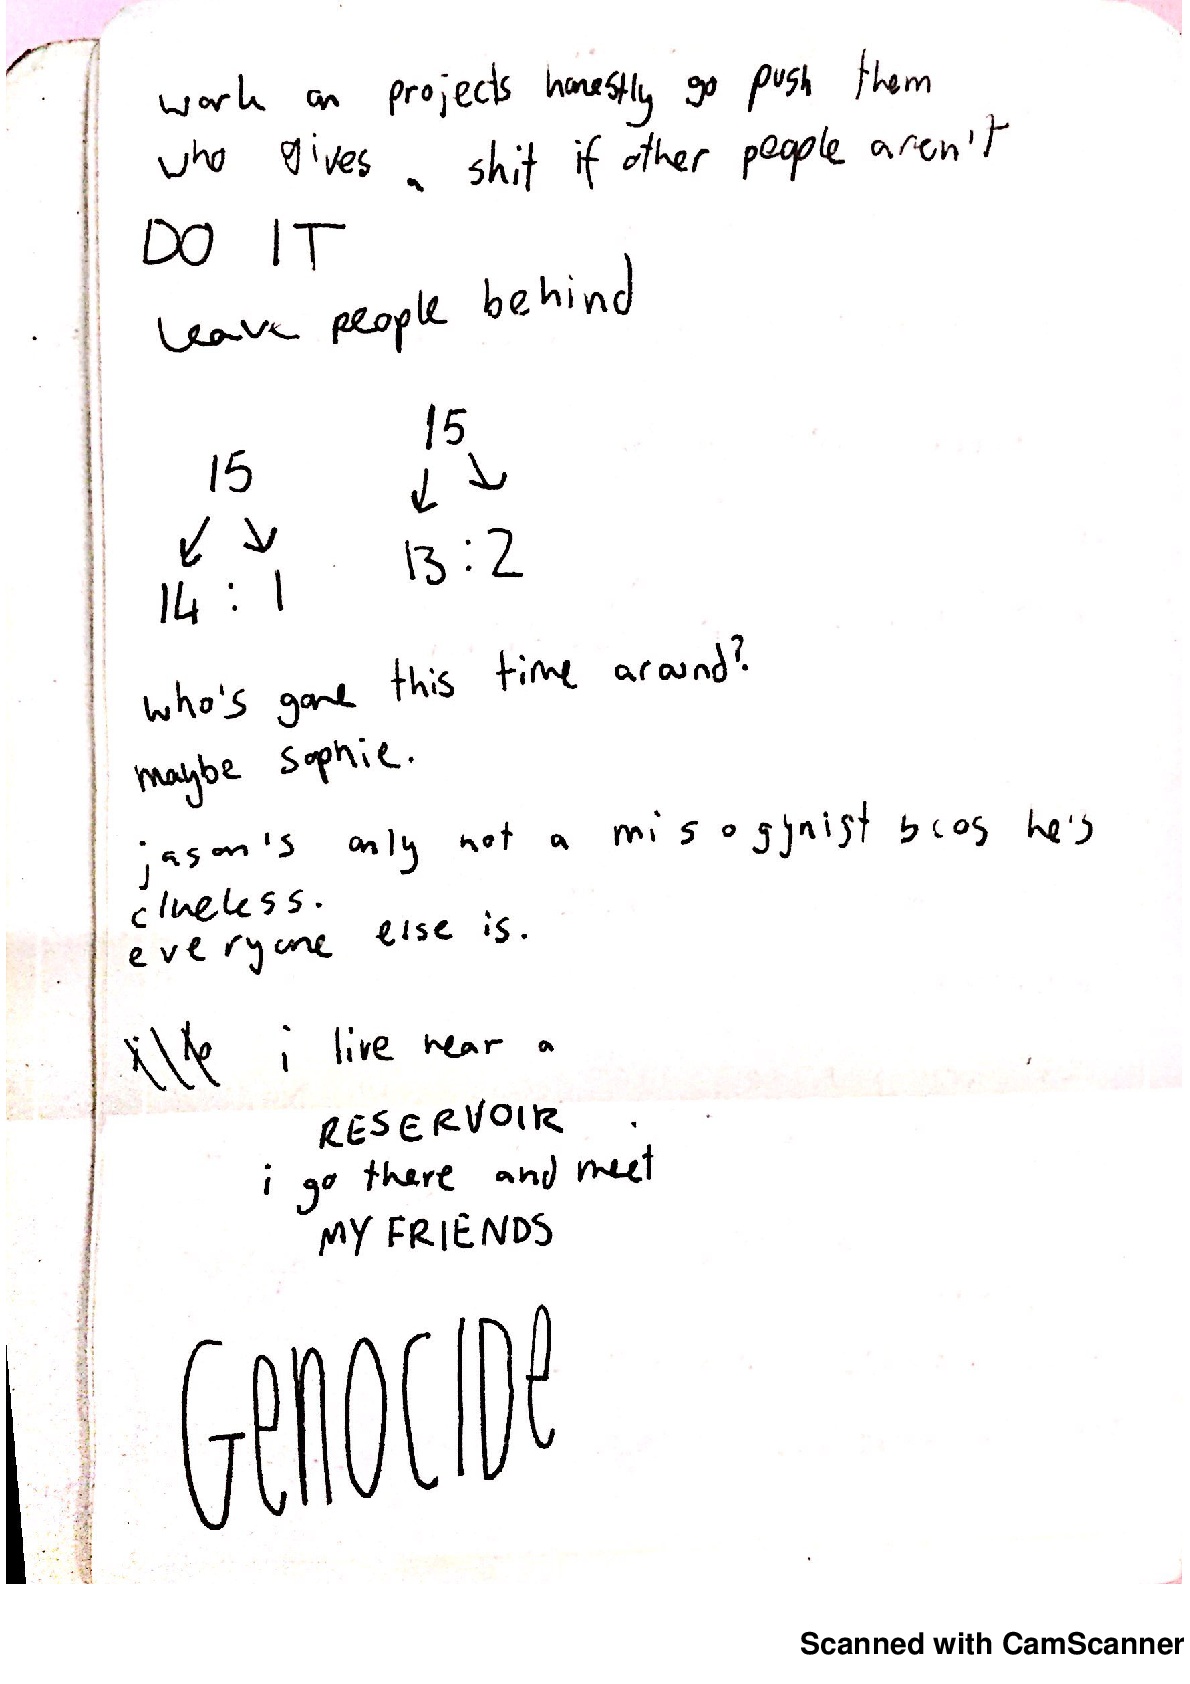 work on projects honestly go push them
who gives a shit if other people aren't
DO IT
leave people behind
15
14 : 1
15
13 : 2
who's gone this time around?
maybe sophie.
jason's only not a misogynist bcos he's
clueless.
everyone else is.
i live near a
RESERVOIR
i go there and meet
MY FRIENDS
GenOCIDe
Scanned with CamScanner